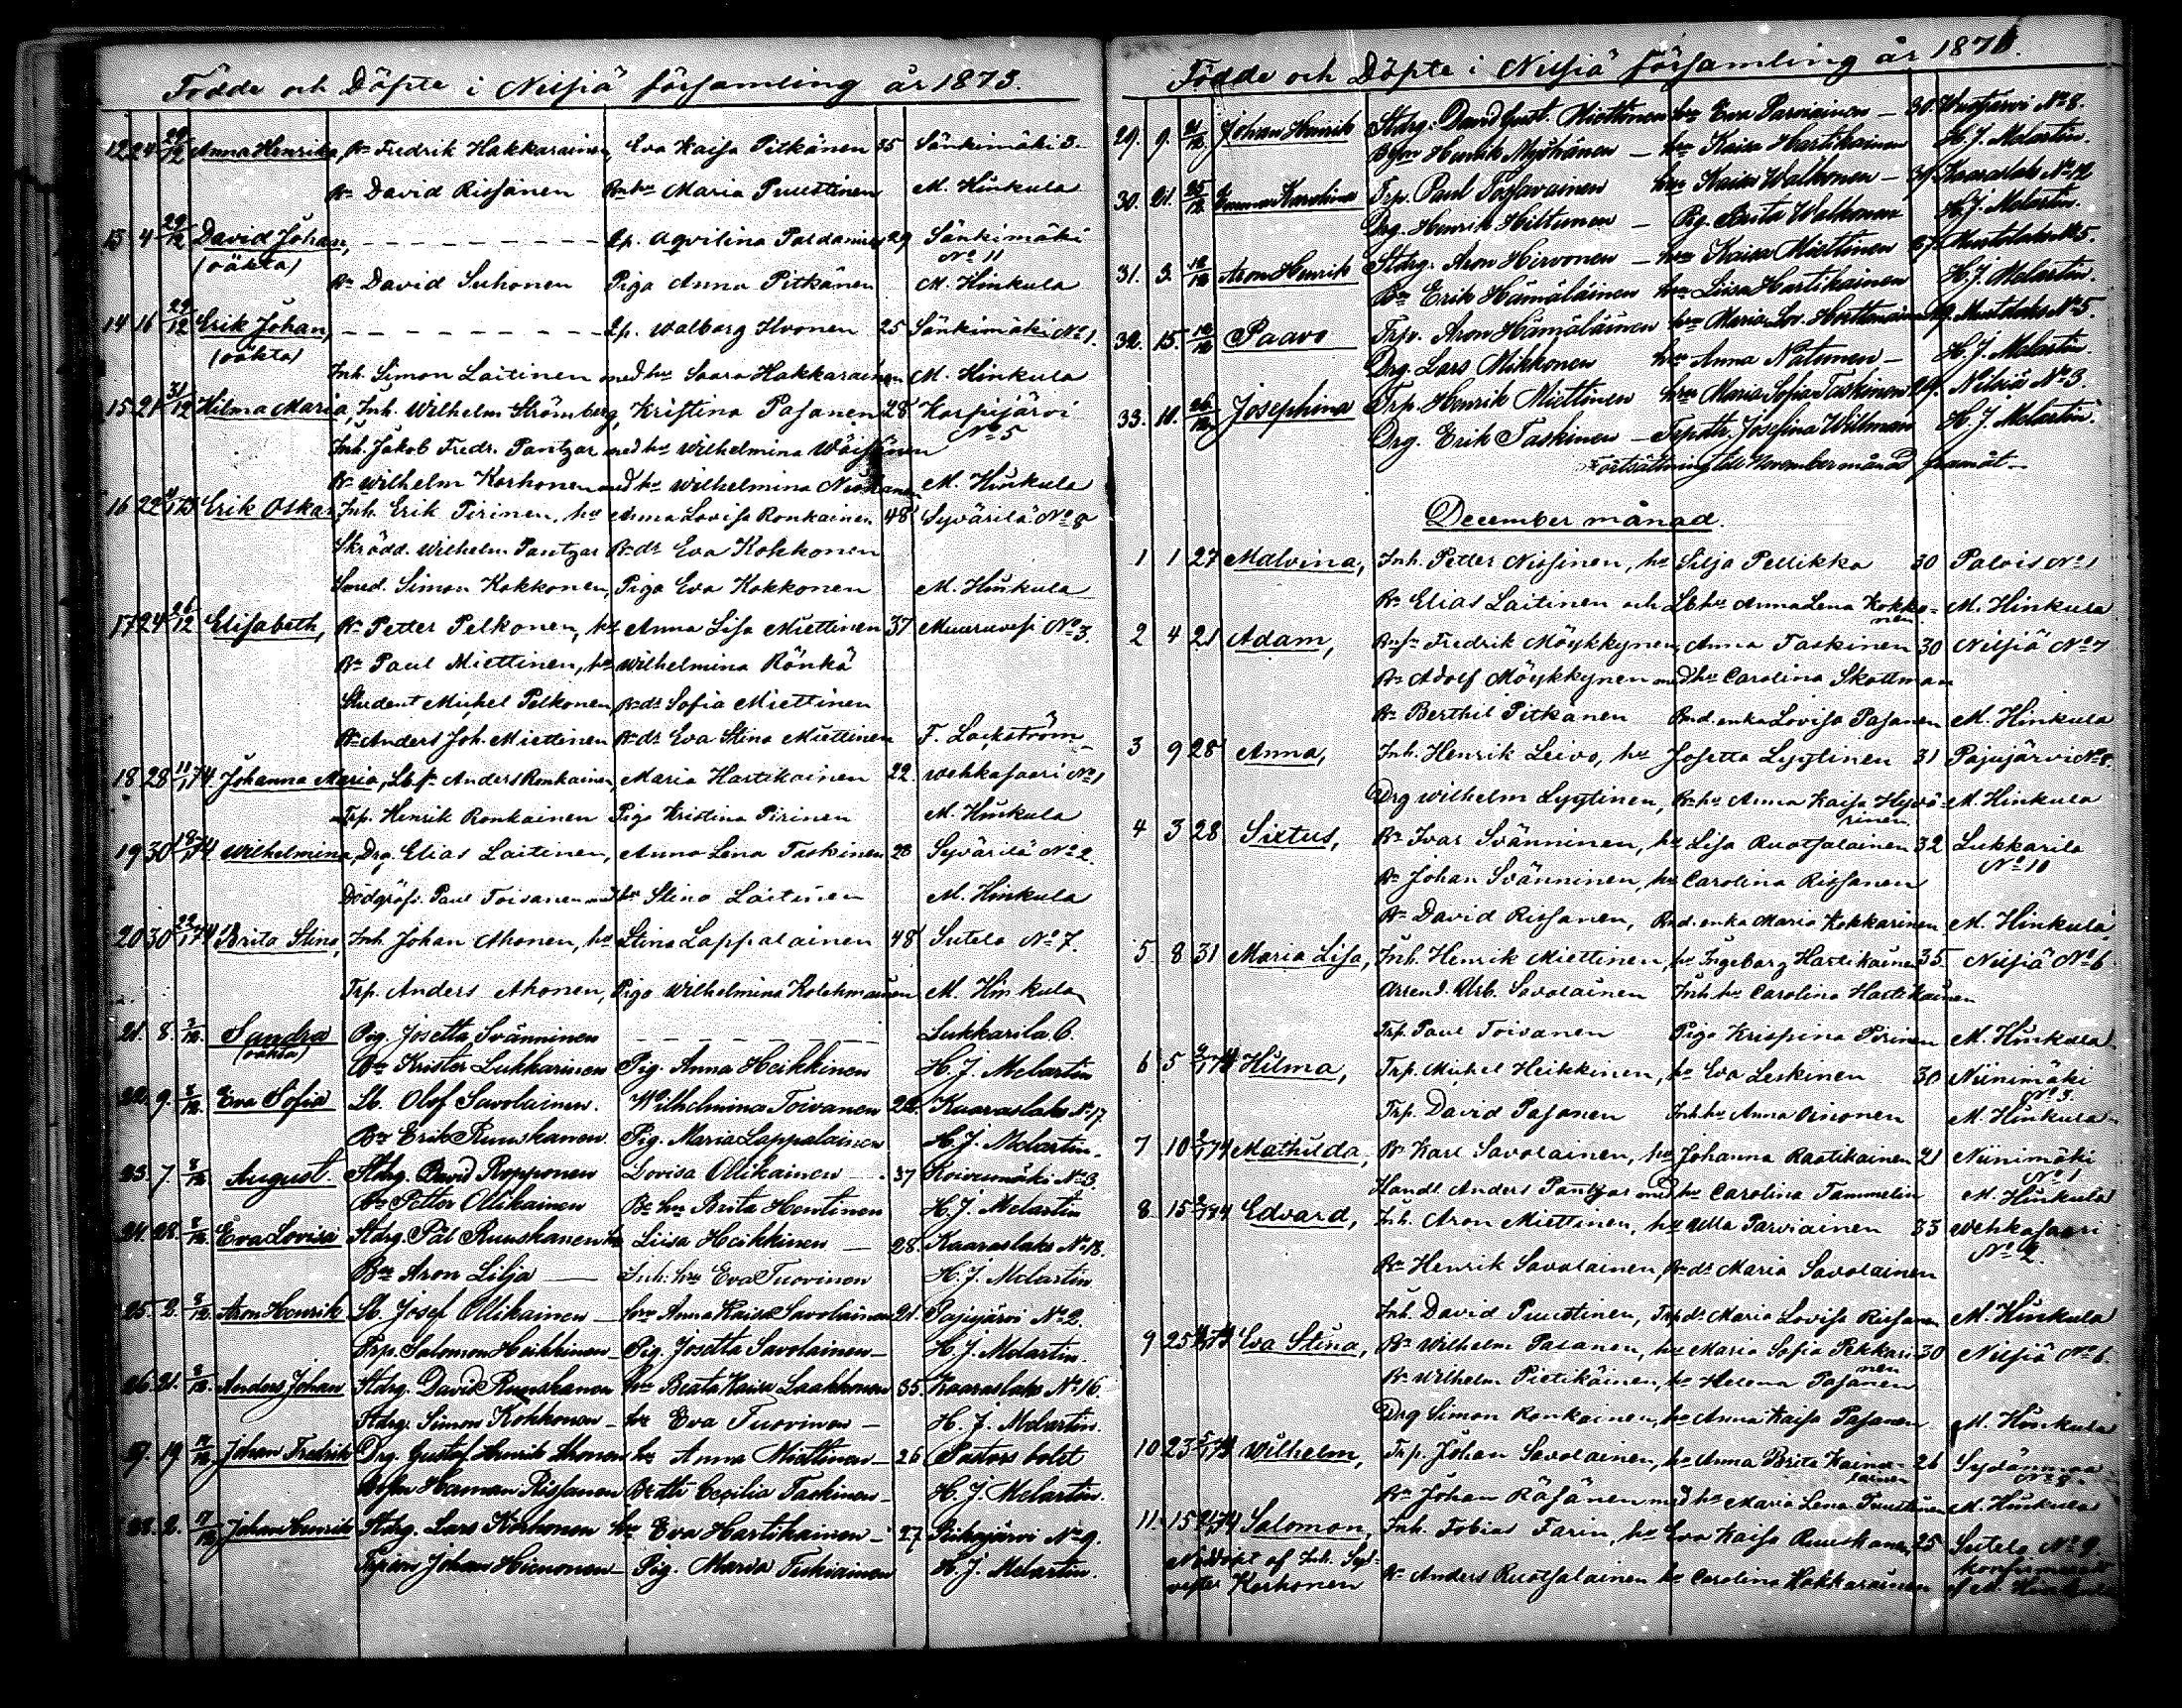 Födde och Döpte i Nilsiä församling år 1873.
12 24 29/12 Anna Henrika, Bn Fredrik Hakkarainen, Eva Kaisa Pitkänen 35 Sänkimäki 3.
Bn David Rissänen Bnhu Maria Puustinen M. Hinkula
13 4 29/12 David Johan, Lp. Aqvilina Paldanius 29 Sänkimäki
(oäkta) No 11
Bn David Suhonen Piga Anna Pitkänen M. Hinkula
14 16 29/12 Erik Johan, Lp. Walborg Ilvonen 25 Sänkimäki No 1.
(oäkta)
Inh. Simon Laitinen med hu Saara Hakkarainen M. Hinkula
15 21 31/12 Hilma Maria, Inh. Wilhelm Strömberg, Kristina Pasanen 28 Korpijärvi
No 5
Inh. Jakob Fredr. Pantzar med hu Wilhelmina Wäisänen
Bn Wilhelm Korhonen med hu Wilhelmina M. Hinkula
16 22 Erik Oskar, Inh. Erik Pirinen, hu Anna Lovisa Ronkainen 48 Syvärilä No 8
Skrädd. Wilhelm Pantzar Bndr Eva Kokkonen
Smed. Simon Kokkonen, Piga Eva Kokkonen M. Hinkula
17 24 26/12 Elisabeth, Bn Petter Pelkonen, hu Anna Lisa Miettinen 37 Muuruvesi No 3.
Bn Paul Miettinen, hu Wilhelmina Rönkä
Student Michel Pelkonen, Bndr Sofia Miettinen
Bn Anders Joh. Miettinen Bndr Eva Stina Miettinen F. Lackström
18 28 11/1 74 Johanna Maria, Lb.sn Anders Ronkainen, Maria Hartikainen 22. Wehkasaari No 1
Trp. Henrik Ronkainen Piga Kristina Pirinen M. Hinkula
19 30 Wilhelmina, Drg. Elias Laitinen, Anna Lena Taskinen 28 Syvärilä No 2.
Dödgräfv. Paul Toivanen med hu Stina Laitinen M. Hinkula
20 30 Brita Stina, Inh. Johan Ahonen, hu Stina Lappalainen 48 Sutela No 7.
Trp. Anders Ahonen, Piga Wilhelmina Kolehmainen M. Hinkula
21. 8. 2/12. Sandra Pig. Josetta Svänninen Lukkarila 6.
(oäkta)
Bn Krister Lukkarinen Pig. Anna Heikkinen H. J. Melartin
22. 9. 2/12. Eva Sofia Lb. Olof Savolainen. Wilhelmina Toivanen 22. Kaaraslaks No 17
Bn Erik Ruuskanen. Pig. Maria Lappalainen H. J. Melartin.
23. 7. 8/12 August. Stdrg. David Ropponen Lovisa Ollikainen 37 Koivumäki No 3
Bn Petter Ollikainen Bn hu Brita Hentinen H. J. Melartin
24. 28. 8/12. Eva Lovisa Stdrg. Pål Ruuskanen hu Liisa Heikkinen 28. Kaaraslaks No 18.
Bn Aron Lilja Inh. hu Eva Tuovinen H. J. Melartin
25. 2. 8/12. Aron Henrik Lb. Josef Ollikainen hu Anna Kaisa Savolainen 21. Pajujärvi No 2.
Trp. Salomon Heikkinen Pig. Josetta Savolainen H. J. Melartin.
26. 21. 8/12. Anders Johan Stdrg. David Ruuskanen hu Beata Kaisa Laakkonen 35. Kaaraslaks No 16.
Stdrg. Simon Kokkonen hu Eva Tuovinen H. J. Melartin.
27. 19. 14/12 Johan Fredrik Drg. Gustaf Henrik hu Anna Miettinen 26 Pastors bolet
Bnsn Herman Rissanen Bn dtr Cecilia Taskinen H. J. Melartin.
28. 2. 17/12 Johan Henrik Stdrg. Lars Korhonen hu Eva Hartikainen 27 No 9.
Johan Hienonen Pig. Maria H. J. Melartin.
Födde och Döpte i Nilsiä församling år 1873.
29. 9. 21/12 Johan Henrik Stdrg. David Gust. Miettinen hu Eva Parviainen 30. No 8.
Bsn Henrik Mykkänen hu Kaisa Hartikainen H. J. Melartin.
30. 21. 25/12 Karolina Trp. Paul hu Kaisa Walkonen 39. Kaaraslaks No 12
Drg. Henrik Hiltunen Pig. Walkonen H. J. Melartin.
31. 3. 12/12 Aron Henrik Stdrg. Aron Hirvonen hu Kaisa Miettinen 27. No 5.
Bn Erik Hämäläinen hu Liisa Hartikainen H. J. Melartin.
32. 15. 12/12 Paavo Trp. Aron Hämäläinen hu Maria Lov. No 5.
Drg. Lars Mikkonen hu Anna Natunen H. J. Melartin.
33. 10. 26/12 Josephina Trp. Henrik Miettinen hu Maria Sofia Taskinen 29. Nilsiä No 3.
Drg. Erik Taskinen Trp. dtr. Josefina H. J. Melartin.
Fortsättning till November månad framåt
December månad.
1 1 27 Malvina, Inh. Petter Nissinen, hu Silja Pellikka 30 Palois No 1
Bn Elias Laitinen och Lb.hu Anna Lena Kokko- M. Hinkula
nen
2 4 21 Adam, Bnsn Fredrik Möykkynen, Anna Taskinen 30 Nilsiä No 7
Bn Adolf Möykkynen med hu Carolina Skottman
Bn Berthil Pitkänen Bnd. enka Lovisa Pasanen M. Hinkula
3 9 28 Anna, Inh. Henrik Leivo, hu Josetta Lyytinen 31 Pajujärvi No 8.
Drg Wilhelm Lyytinen, Bn hu Anna Kaisa Hyvä- M. Hinkula
rinen
4 3 28 Sixtus, Bn Ivar Svänninen, hu Lisa Ruotsalainen 32 Lukkarila
No 10
Bn Johan Svänninen, hu Carolina Rissanen
Bn David Rissanen, Bnd. enka Maria Kokkarinen M. Hinkula
5 8 31 Maria Lisa, Inh. Henrik Miettinen, hu Ingeborg Hartikainen 35 Nilsiä No 6
Arrend. Urb. Savolainen Inh hu Carolina Hartikainen
Trp. Paul Toivanen Piga Krispina Pirinen M. Hinkula
6 5 Hilma, Trp. Michel Heikkinen, hu Eva Leskinen 30 Niinimäki
No 3.
Trp. David Pasanen Inh. hu Anna M. Hinkula
7 10 Mathilda, Bn Karl Savolainen, hu Johanna Raatikainen 21 Niinimäki
No 1
Handl. Anders Pantzar med hu Carolina Tammelin M. Hinkula
8. 15 Edvard, Inh. Aron Miettinen, hu Ulla Parviainen 33 Wehkasaari
No 2.
Bn Henrik Savolainen, Bndr Maria Savolainen
Inh. David Puustinen, Trp dr Maria Lovisa Rissanen M. Hinkula
9 25 Eva Stina, Bn Wilhelm Pasanen, hu Maria Sofia Pekkari- 30 Nilsiä No 6.
nen
Bn Wilhelm Pietikäinen, hu Helena Pasanen
Drg Simon Ronkainen, hu Anna Kaisa Pasanen M. Hinkula
10 23 Wilhelm, Trp. Johan Savolainen, hu Anna Brita Kainu- 26 Sydänmaa
lainen No 8.
Bn Johan Räsänen med hu Maria Lena Puustinen M. Hinkula
11. 15 Salomon, Inh. Tobias Farin, hu Eva Kaisa Ruuskanen, 25 Sutela No 9.
Nöddöpt af Inh. Syl-
vester Korhonen Bn Anders Ruotsalainen hu Carolina Hakkarainen af M. Hinkula